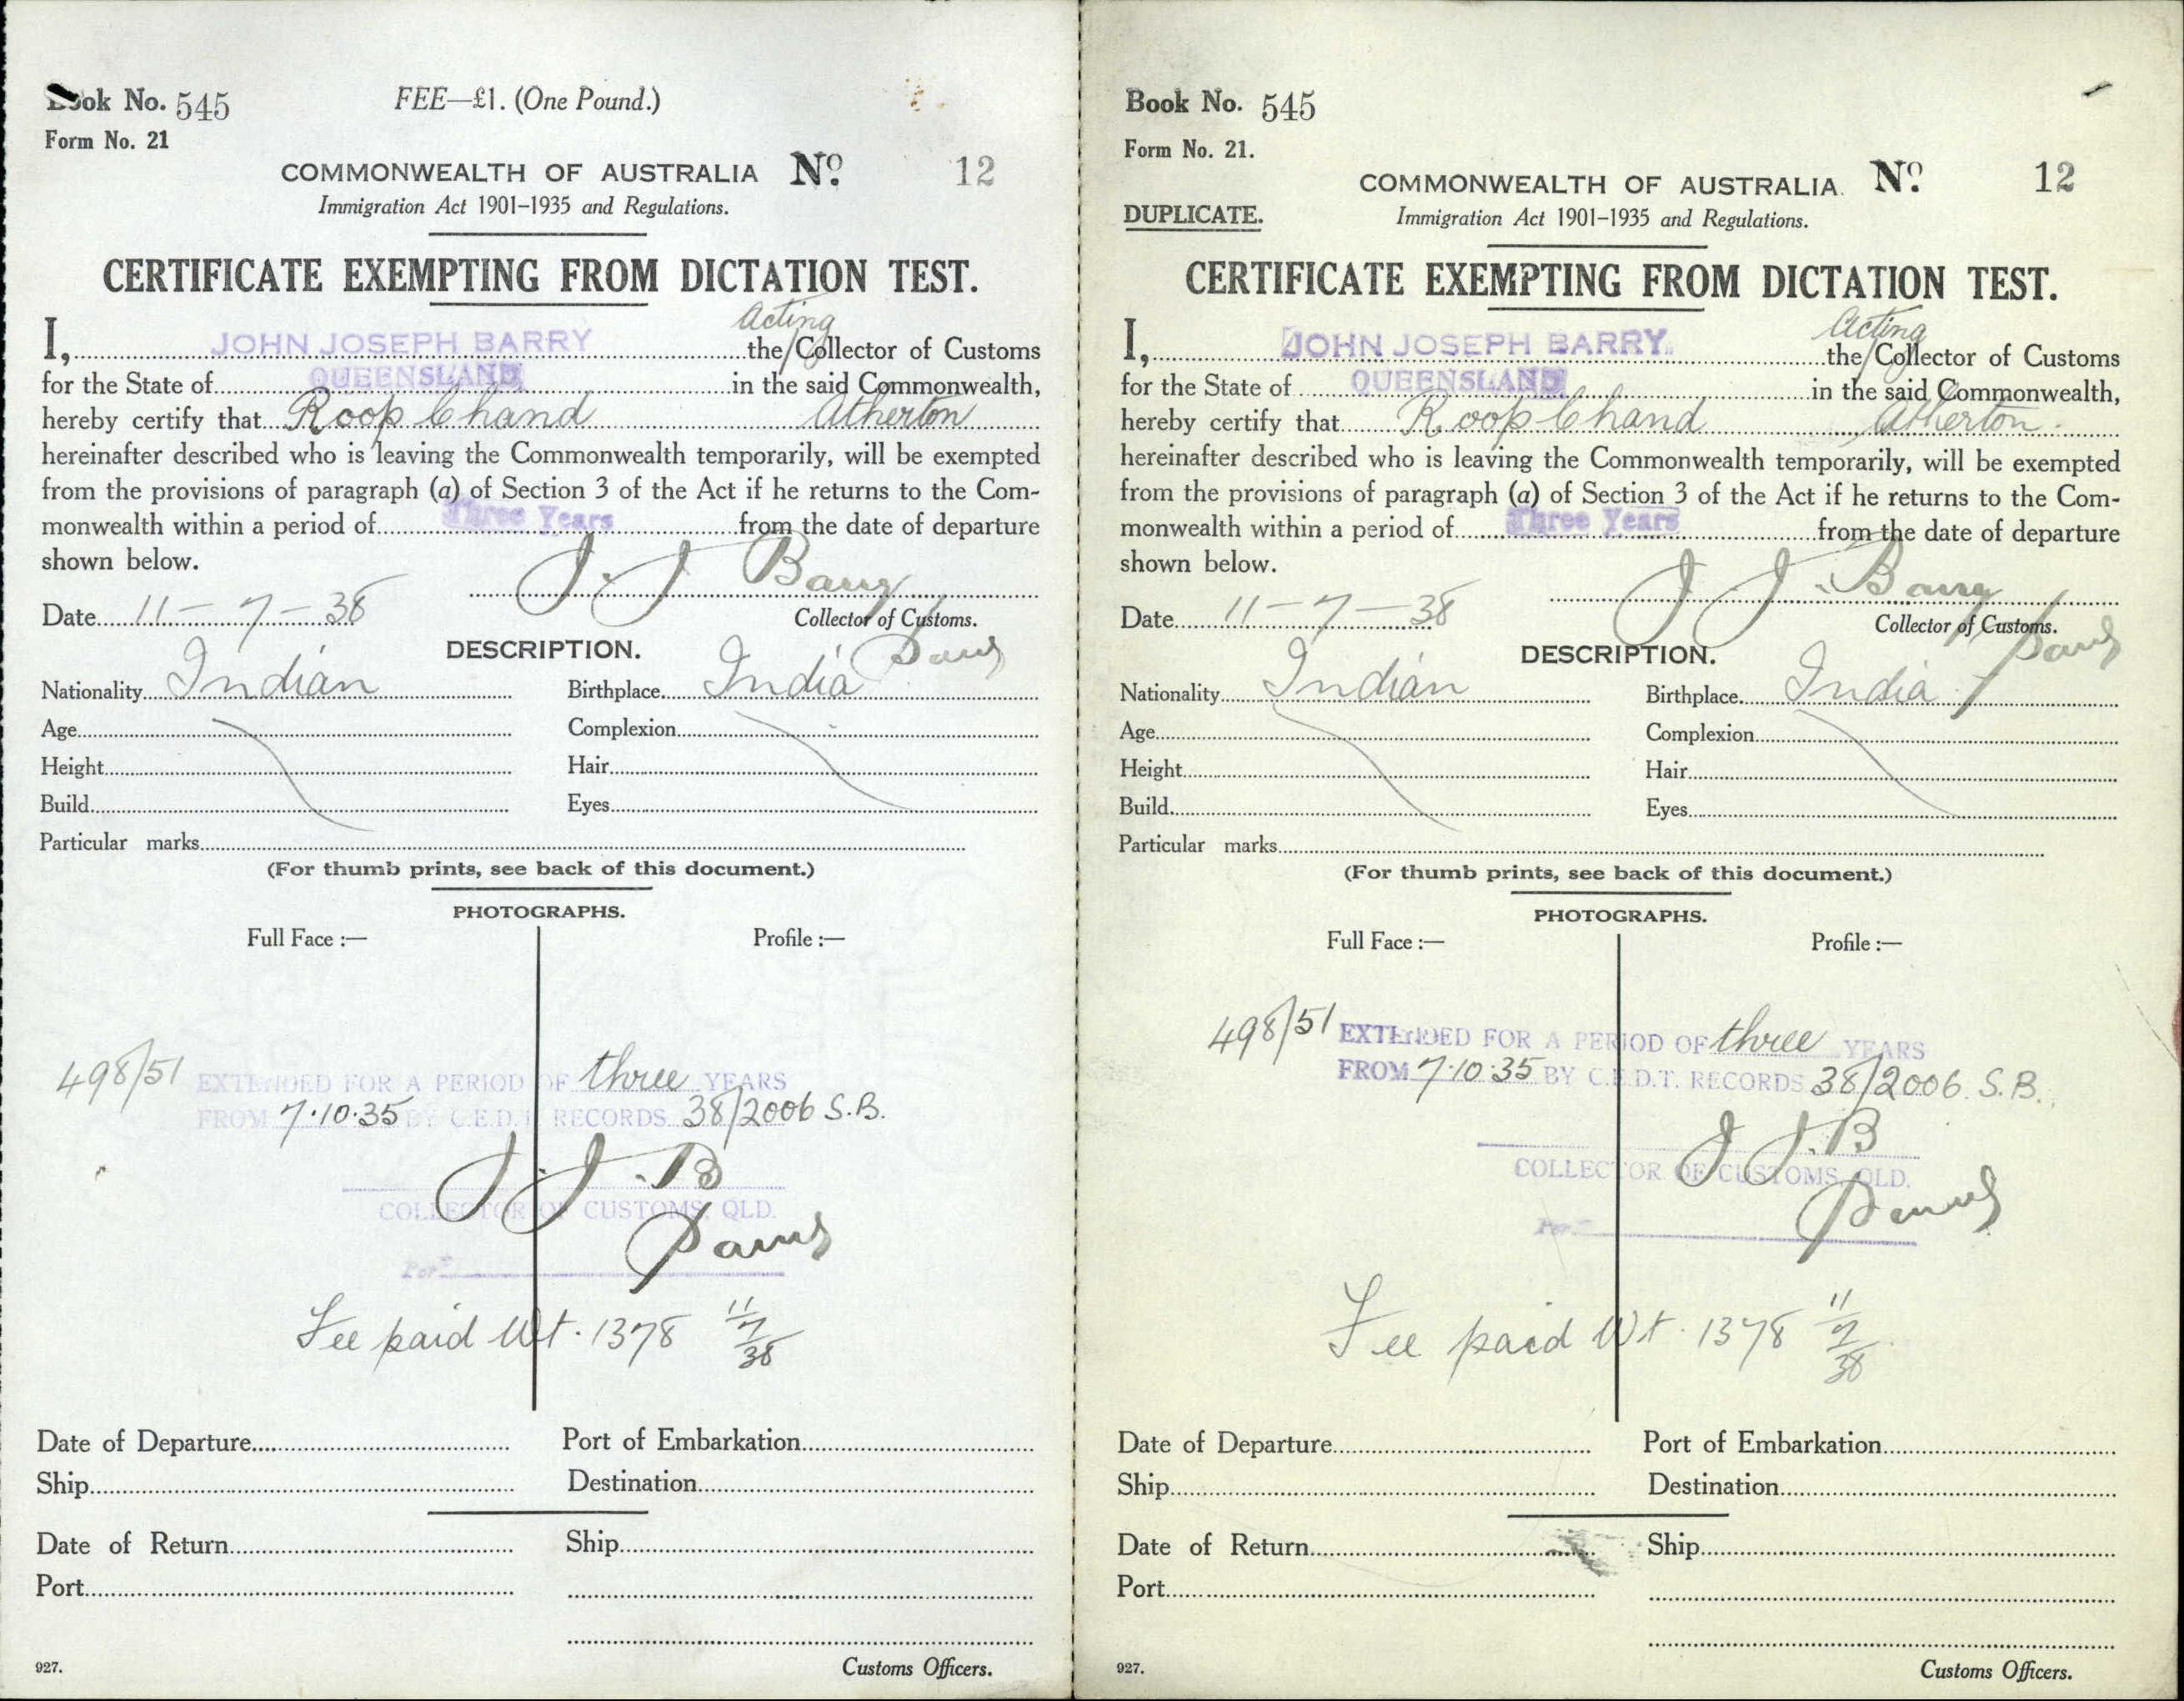 Book No. 545
FEE—£1. (One Pound.)
Form No. 21
COMMONWEALTH OF AUSTRALIA No. 12
Immigration Act 1901–1935 and Regulations.
CERTIFICATE EXEMPTING FROM DICTATION TEST.
Acting
I, JOHN JOSEPH BARRY the/Collector of Customs
for the State of QUEENSLAND in the said Commonwealth,
hereby certify that Roop Chand Atherton
hereinafter described who is leaving the Commonwealth temporarily, will be exempted
from the provisions of paragraph (a) of Section 3 of the Act if he returns to the Com-
monwealth within a period of Three Years from the date of departure
shown below.
J. J. Barry
Date 11–7–38
Collector of Customs.
DESCRIPTION.
Nationality Indian Birthplace India
Age Complexion
Height Hair
Build Eyes
Particular marks
(For thumb prints, see back of this document.)
PHOTOGRAPHS.
Full Face :— Profile :—
498/51 EXTENDED FOR A PERIOD OF three YEARS
FROM 7.10.35 BY C.E.D.T. RECORDS 38/2006 S.B.
J. J. B
COLLECTOR OF CUSTOMS, QLD.
Per
Fee paid Wt. 1378 11/7/38
Date of Departure Port of Embarkation
Ship Destination
Date of Return Ship
Port
927. Customs Officers.
Book No. 545
Form No. 21.
COMMONWEALTH OF AUSTRALIA. No. 12
DUPLICATE.
Immigration Act 1901–1935 and Regulations.
CERTIFICATE EXEMPTING FROM DICTATION TEST.
Acting
I, JOHN JOSEPH BARRY. the/Collector of Customs
for the State of QUEENSLAND in the said Commonwealth,
hereby certify that Roop Chand Atherton.
hereinafter described who is leaving the Commonwealth temporarily, will be exempted
from the provisions of paragraph (a) of Section 3 of the Act if he returns to the Com-
monwealth within a period of Three Years from the date of departure
shown below.
J. J. Barry
Date 11–7–38
Collector of Customs.
DESCRIPTION.
Nationality Indian Birthplace India
Age Complexion
Height Hair
Build Eyes
Particular marks
(For thumb prints, see back of this document.)
PHOTOGRAPHS.
Full Face :— Profile :—
498/51 EXTENDED FOR A PERIOD OF three YEARS
FROM 7.10.35 BY C.E.D.T. RECORDS 38/2006. S.B.
J. J. B
COLLECTOR OF CUSTOMS, QLD.
Per
Fee paid Wt. 1378 11/7/38
Date of Departure Port of Embarkation
Ship Destination
Date of Return Ship
Port
927. Customs Officers.